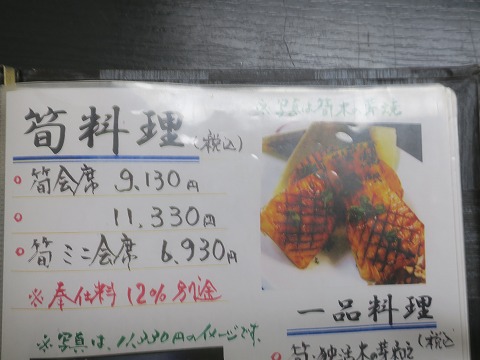 筍料理(税込)
筍会席 9.130円
11.330円
筍ミニ会席 6.930円
※奉仕料 12%別途
※写真は、11.330円のイメージです。
※写真は筍木の芽焼
一品料理
(税込)